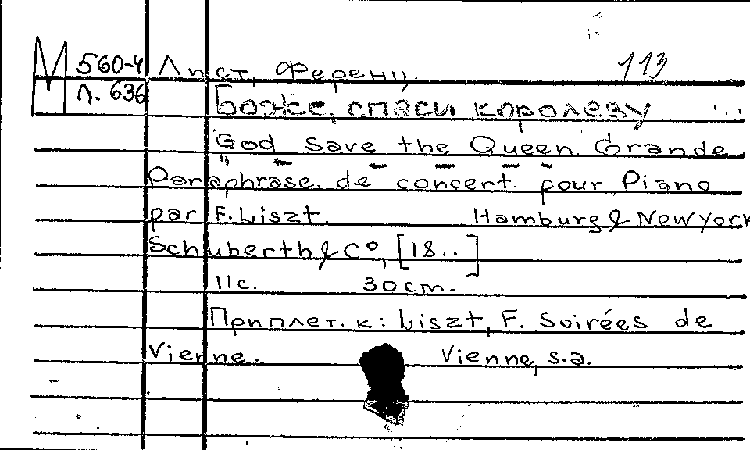 М 560-4 Лист, Ференц. 113
Л. 636 [Боже, спаси королеву
God save the Queen. Grande
Paraphrase de concert pour Piano
par F. Liszt. Hamburg & New York
Schuberth & Cº, [18..]
11 с. 30 cm.
Приплет. к: Liszt, F. Soirées de
Vienne. Vienne, s.a.